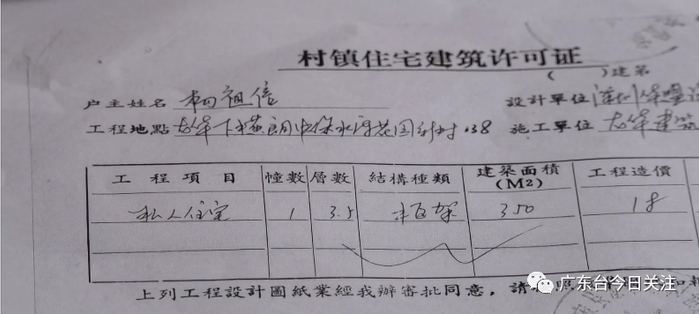 村镇住宅建筑许可证
( )建築
户主姓名 祖信 設計單位 深圳
工程地點 龙华下 花园新村 038 施工單位 龙华建筑
工程項目 幢數 層數 結構種類 建築面積(M2) 工程造價
私人住宅 1 3.5 框架 350 18
上列工程設計圖紙業經我辦審批同意，請
广东台今日关注